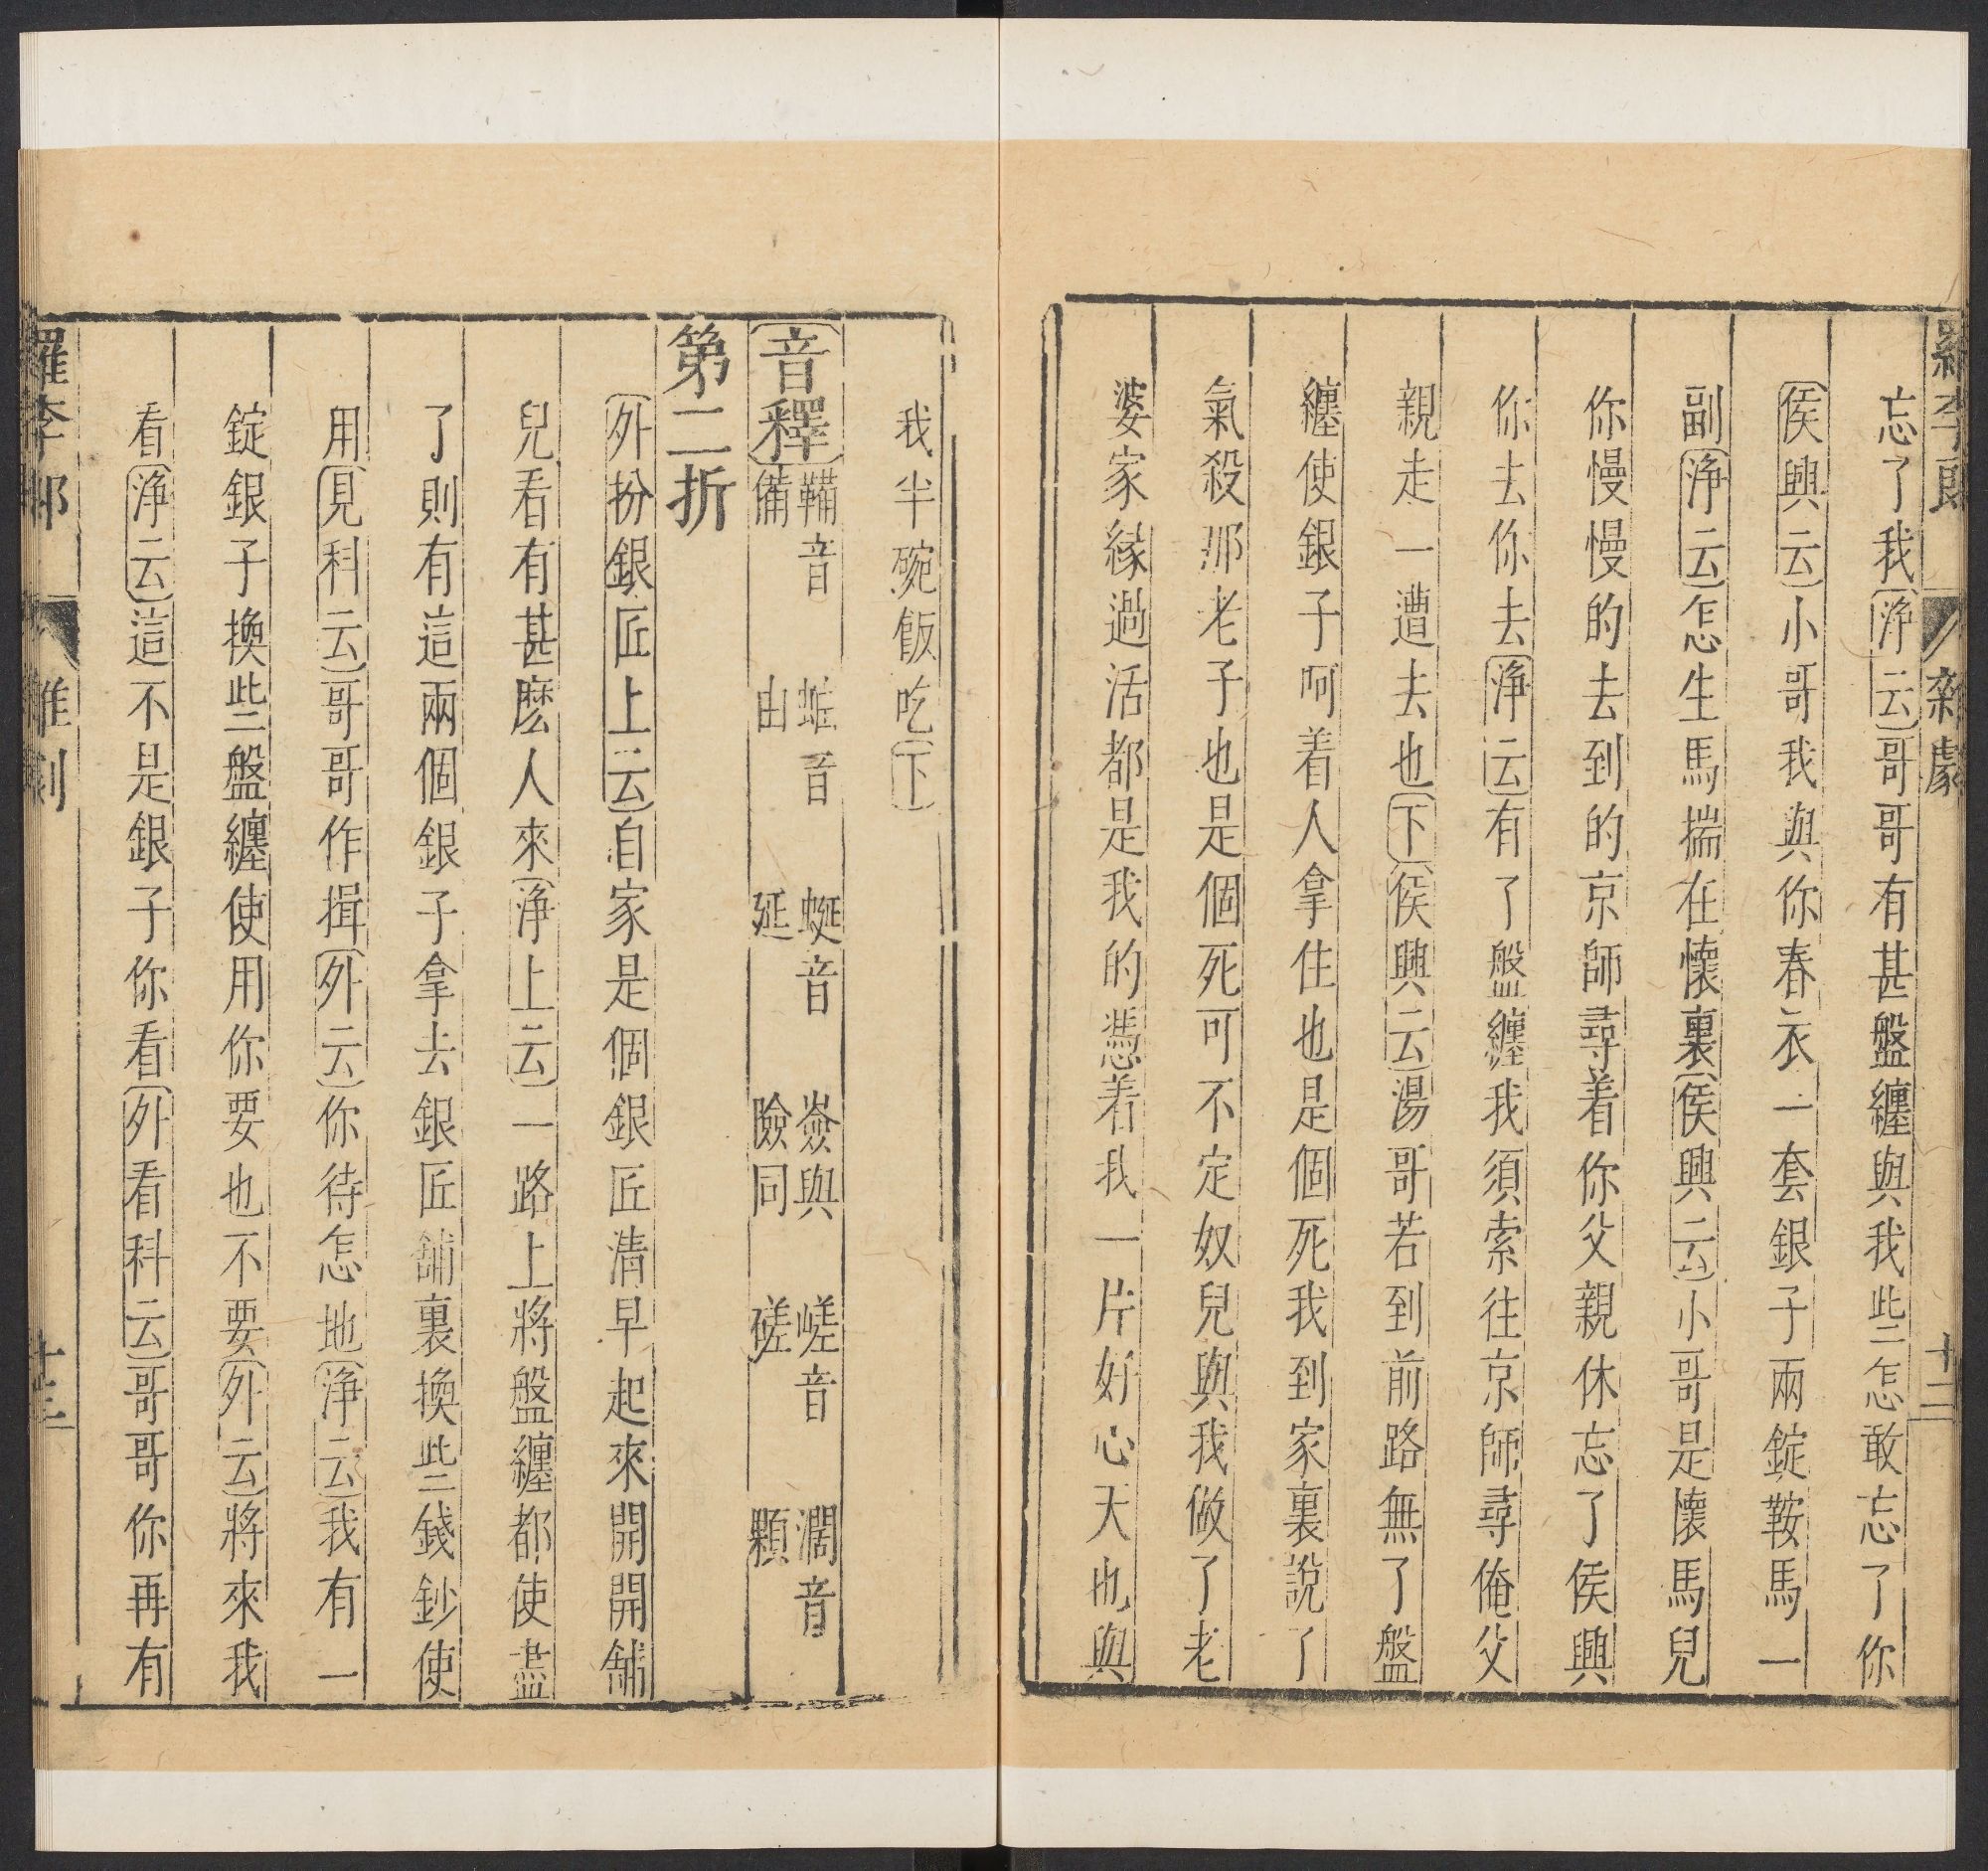 羅李郎 雜劇 十二
忘了我(淨云)哥哥有甚盤纏與我些怎敢忘了你
(侯興云)小哥我與你春衣一套銀子兩錠鞍馬一
副(淨云)怎生馬揣在懷裏(侯興云)小哥是懷馬兒
你慢慢的去到的京師尋着你父親休忘了侯興
你去你去(淨云)有了盤纏我須索往京師尋俺父
親走一遭去也(下)(侯興云)湯哥若到前路無了盤
纏使銀子呵着人拿住也是個死我到家裏說了
氣殺那老子也是個死可不定奴兒與我做了老
婆家緣過活都是我的憑着我一片好心天也與
我半碗飯吃(下)
(音釋)鞴音備 蚰音由 蜒音延 嶮與險同 嵯音磋 濶音顆
第二折
(外扮銀匠上云)自家是個銀匠清早起來開開舖
兒看有甚麽人來(淨上云)一路上將盤纏都使盡
了則有這兩個銀子拿去銀匠舖裏換些錢鈔使
用(見科云)哥哥作揖(外云)你待怎地(淨云)我有一
錠銀子換些盤纏使用你要也不要(外云)將來我
看(淨云)這不是銀子你看(外看科云)哥哥你再有
羅李郎 雜劇 十三